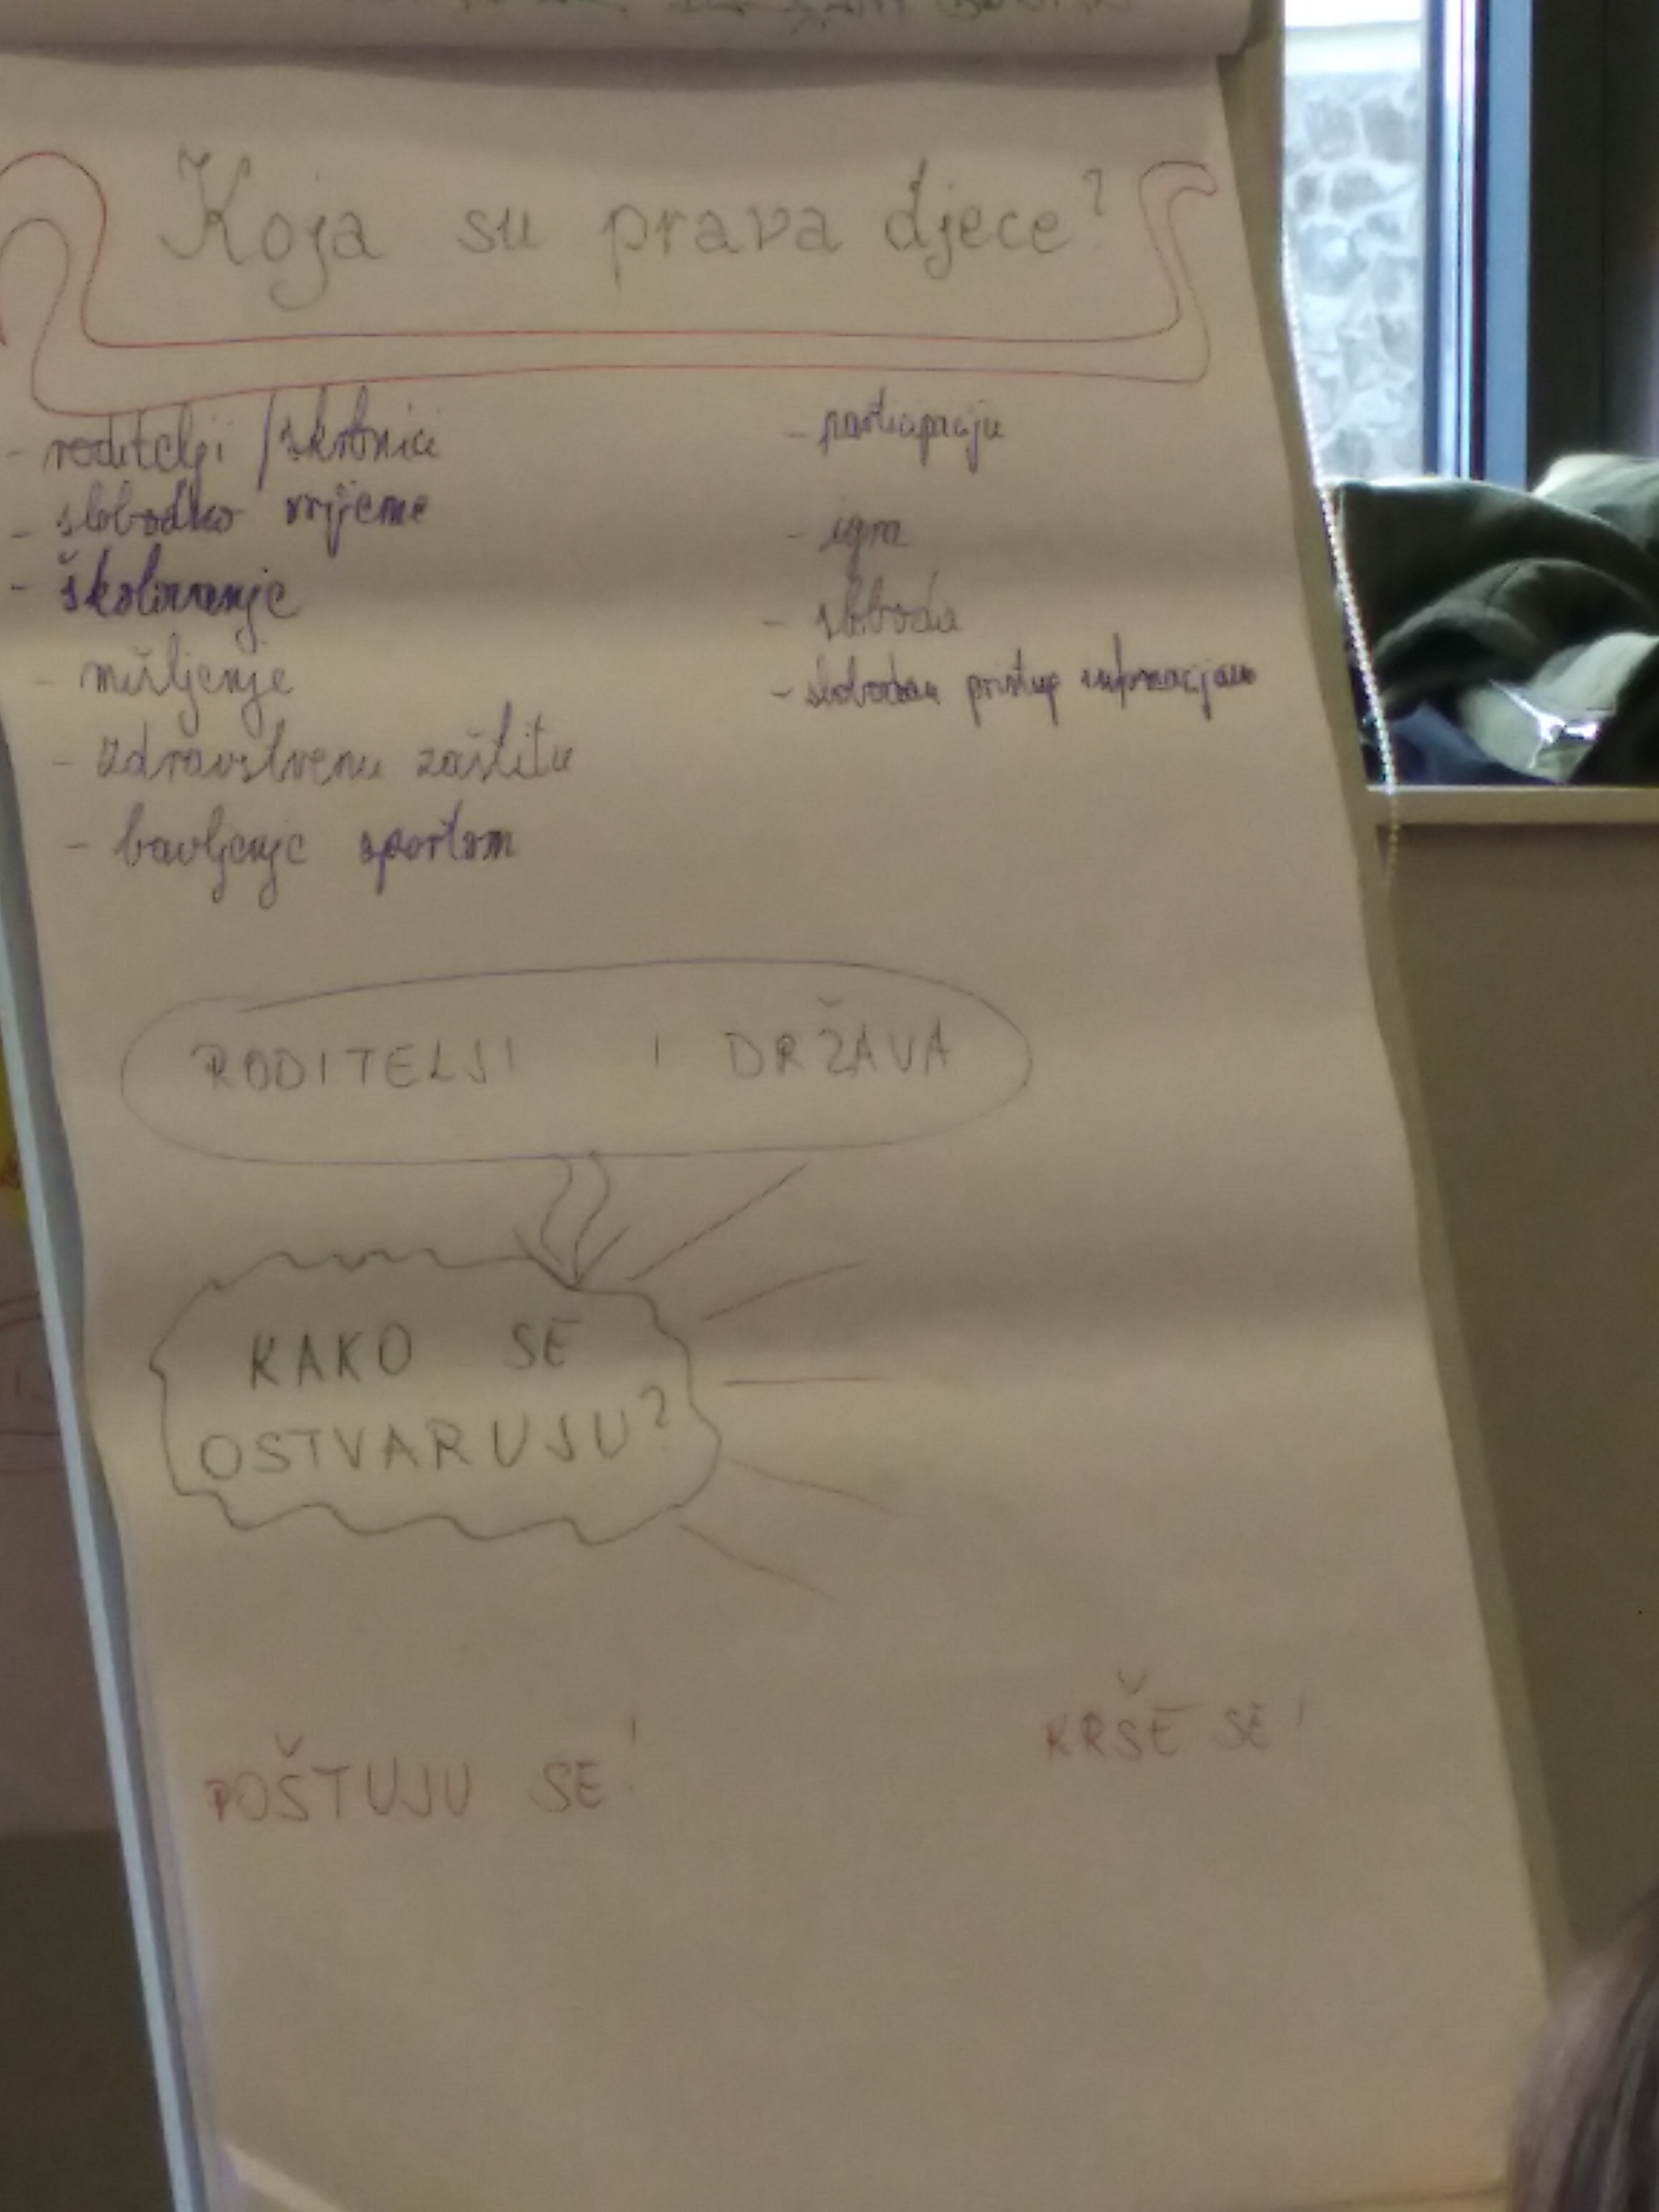 Koja su prava djece?
- roditelji / skrbnici
- slobodno vrijeme
- školovanje
- mišljenje
- zdravstvenu zaštitu
- bavljenje sportom
- participaciju
- igra
- sloboda
- slobodan pristup informacijama
RODITELJI I DRŽAVA
KAKO SE
OSTVARUJU?
POŠTUJU SE!
KRŠE SE!